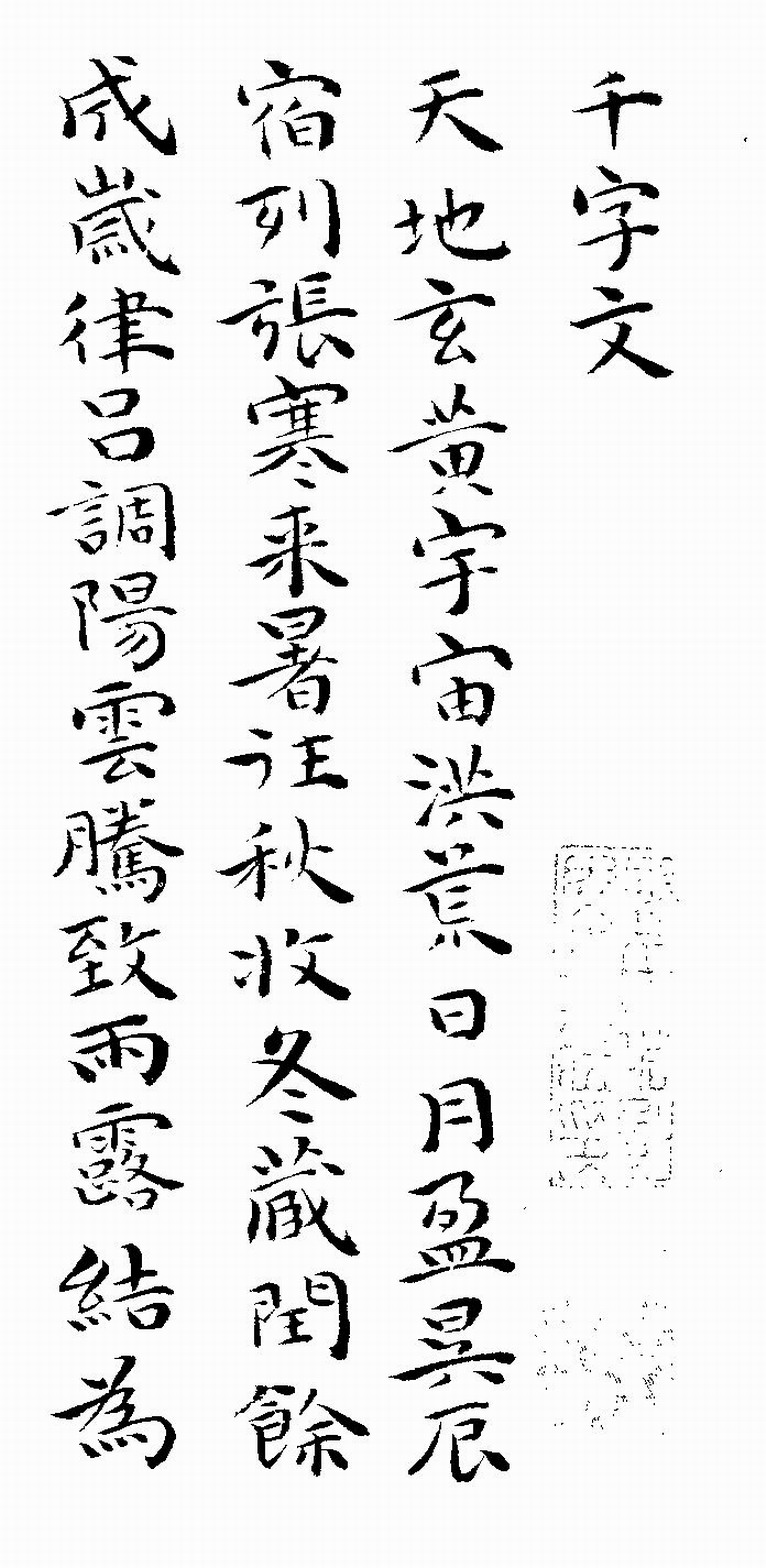 千字文
天地玄黄宇宙洪荒日月盈昃辰
宿列張寒来暑往秋收冬蔵閏餘
成歳律呂調陽雲騰致雨露結為